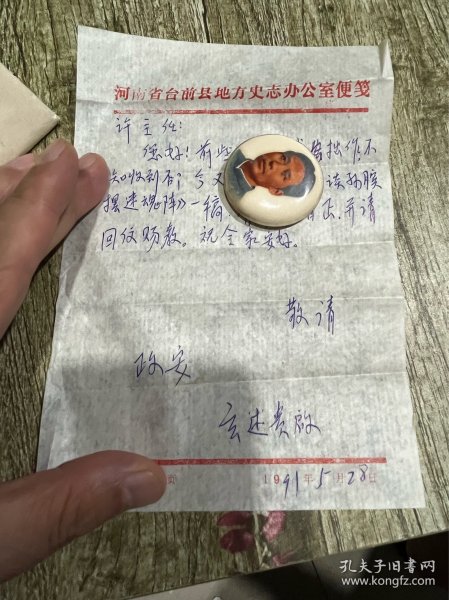 河南省台前县地方史志办公室便笺
许主任:
您好!前些 拙作,不
知收到否?今又 谈孙膑
摆迷魂阵》一稿, 正,并请
回纹赐教。祝全家安好。
敬请
政安
玄述贵敬
页 1991年5月28日
孔夫子旧书网
www.kongfz.com